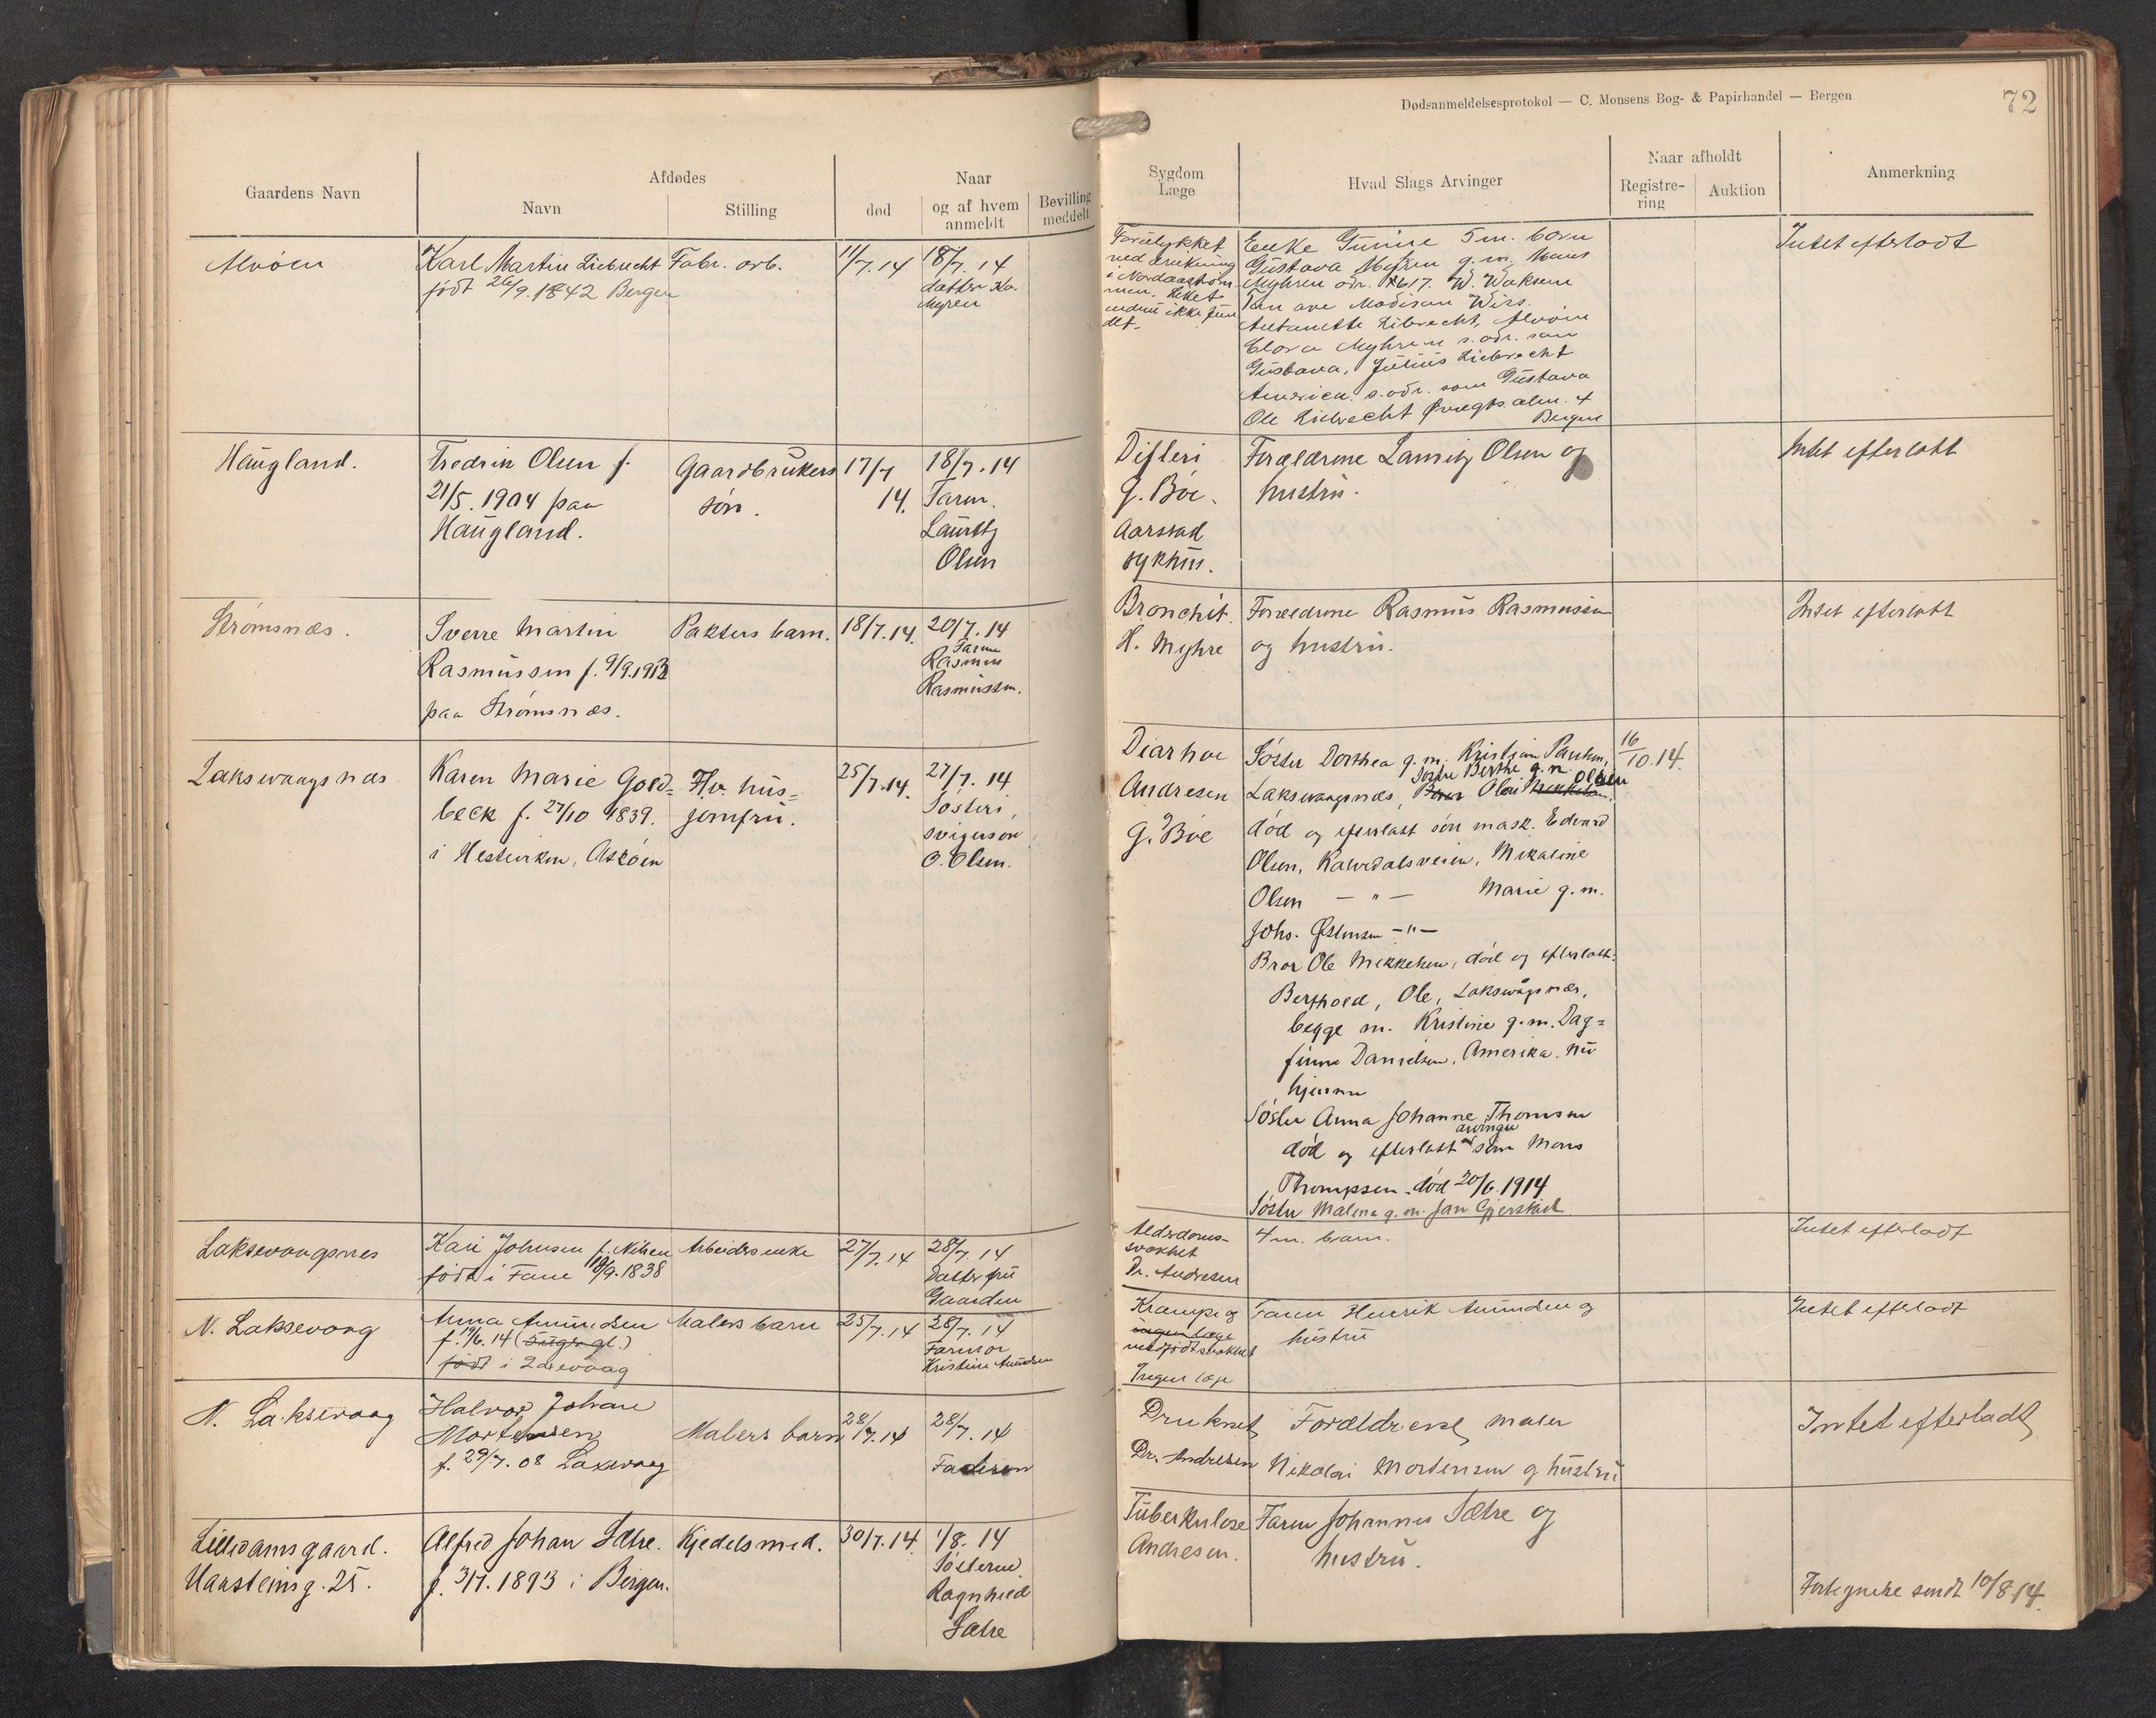 Dødsanmeldelsesprotokol — C. Monsens Bog- & Papirhandel — Bergen
72
Gaardens Navn
Afdødes
Navn
Stilling
død
Naar
og af hvem
anmeldt
Bevilling
meddelt
Sygdom
Læge
Hvad Slags Arvinger
Naar afholdt
Registre-
ring
Auktion
Anmerkning
Alvøen
Karl Martin Liebrecht
født 26/9.1842 Bergen
Fabr. arb.
11/7.14
18/7.14
datter Ka.
Myren
Forulykket
ved drukning
i Nordaastrøm
men. Liket
endnu ikke fun
det.
Enke Gurine 5 m. børn
Gustava Myhren g.m. Mons
Myhren adr. 617. W.
ave Madison Wiss.
Antonette Librecht, Alvøen
Clara Myhren s. adr. som
Gustava, Julius Liebrecht
America s. adr. som Gustava
Ole Liebrecht alm. 4
Bergen
Intet efterladt
Haugland.
Fredrik Olsen f.
21/5.1904 paa
Haugland.
Gaardbrukers
søn.
17/7
14.
18/7.14
Faren
Lauritz
Olsen
Difteri
G. Bøe.
Aarstad
sykhus.
Forældrene Lauritz Olsen og
hustru.
Intet efterlatt
Strømsnæs.
Sverre Martin
Rasmussen f. 9/9.1913
paa Strømsnæs.
Pakters barn.
18/7.14.
20/7.14
Faren
Rasmus
Rasmussen.
Bronchit.
H. Myhre
Forældrene Rasmus Rasmussen
og hustru.
Intet efterlatt
Laksevaagsnæs
Karen Marie Gold=
beck f. 27/10 1839.
i Hestviken, Askøen
Hv. hus=
jomfru.
25/7.14.
27/7.14
Søsters
svigersøn
O. Olsen.
Diarhoe
Andresen
G. Bøe
Søster Dorthea g.m. Kristian Paulsen,
Søster Berthe g.m. Olsen
Laksevaagsnæs, Bror Ole Mikkelsen,
død og efterlatt søn mask. Edvard
Olsen, Kalvedalsveien, Mikaline
Olsen — " — Marie g.m.
Johs. Østensen —"—
Bror Ole Mikkelsen, død og efterlatt:
Berthold, Ole, Laksevågsnæs,
begge m. Kristine g.m. Dag=
finn Danielsen, Amerika. nu
hjemme
Søster Anna Johanne Thomsen
arvinger
død og efterlatt søn Mons
Thompsen. død 20/6.1914
Søster Malena g.m. Jan Gjerstad.
16/10.14.
Laksevaagsnes
Kari Johnsen f. Nilsen
født i Fane 18/9.1838
Arbeiders enke
27/7.14
28/7.14
Datter fru
Gaarden
Alderdoms-
svakhet
Dr. Andresen
4 m. barn.
Intet efterladt
N. Laksevaag
Anna Amundsen
f. 19/6.14 (5 uger gl.)
født i Laksevaag
Malers barn
25/7.14
28/7.14
Farmor
Kristine Amundsen
Krampe og
ingen læge
medfødt svakhet
Ingen læge
Faren Henrik Amundsen og
hustru
Intet efterladt
N. Laksevaag
Halvor Johan
Mortensen
f. 29/7.08 Laxevaag
Malers barn
28/7.14
28/7.14
Faderen
Druknet
Dr. Andresen
Forældrene, maler
Nikolai Mortensen og hustru
Intet efterladt
Lilledamsgaard.
Haasteinsg. 25.
Alfred Johan Sætre.
f. 3/7.1893 i Bergen.
Kjedelsmed.
30/7.14.
1/8.14
Søsteren
Ragnhild
Sætre
Tuberkulose
Andresen.
Faren Johannes Sætre og
hustru.
Fortegnelse sendt 10/8.14.